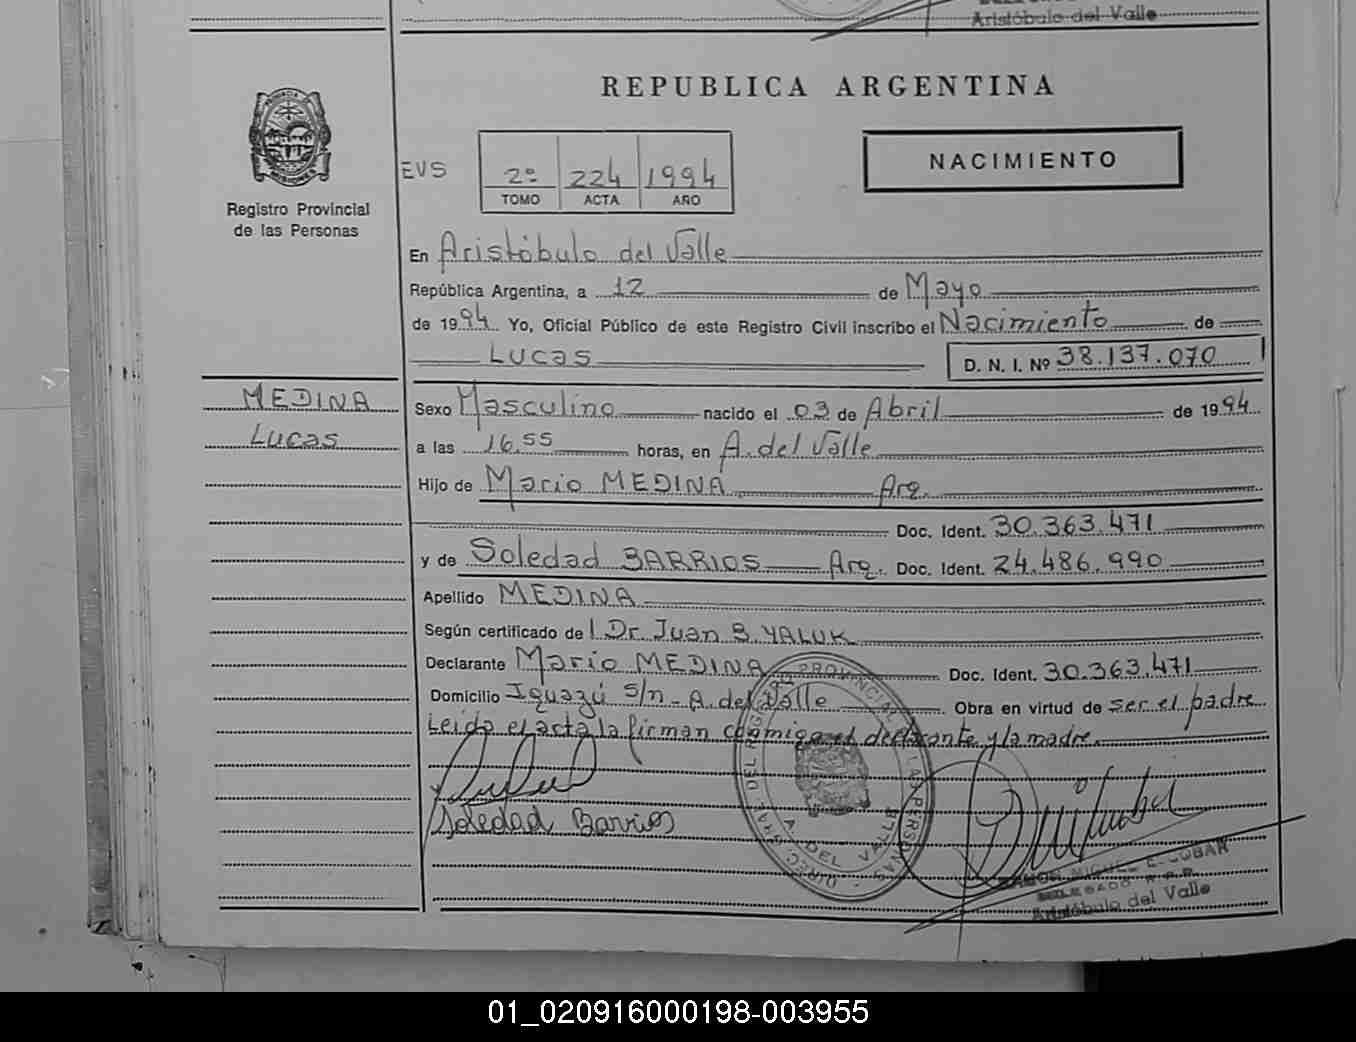 Aristóbulo del Valle
REPUBLICA ARGENTINA
Registro Provincial
de las Personas
EVS
2º 224 1994
TOMO ACTA AÑO
NACIMIENTO
En Aristóbulo del Valle
República Argentina, a 12 de Mayo
de 1994 Yo, Oficial Público de este Registro Civil inscribo el Nacimiento de
Lucas D. N. I. Nº 38.137.070
MEDINA
Lucas
Sexo Masculino nacido el 03 de Abril de 1994
a las 16.55 horas, en A. del Valle
Hijo de Mario MEDINA Arg.
Doc. Ident. 30.363.471
y de Soledad BARRIOS Arg. Doc. Ident. 24.486.990
Apellido MEDINA
Según certificado de l Dr. Juan B YALUK
Declarante Mario MEDINA Doc. Ident. 30.363.471
Domicilio Iguazú s/n - A. del Valle Obra en virtud de ser el padre
Leida el acta la firman conmigo el declarante y la madre.
Soledad Barrios
DIREC. GRAL. DEL REGISTRO PROVINCIAL DE LAS PERSONAS
A. DEL VALLE
RAMON MIGUEL ESCOBAR
DELEGADO R.P.P.
Aristóbulo del Valle
01_020916000198-003955